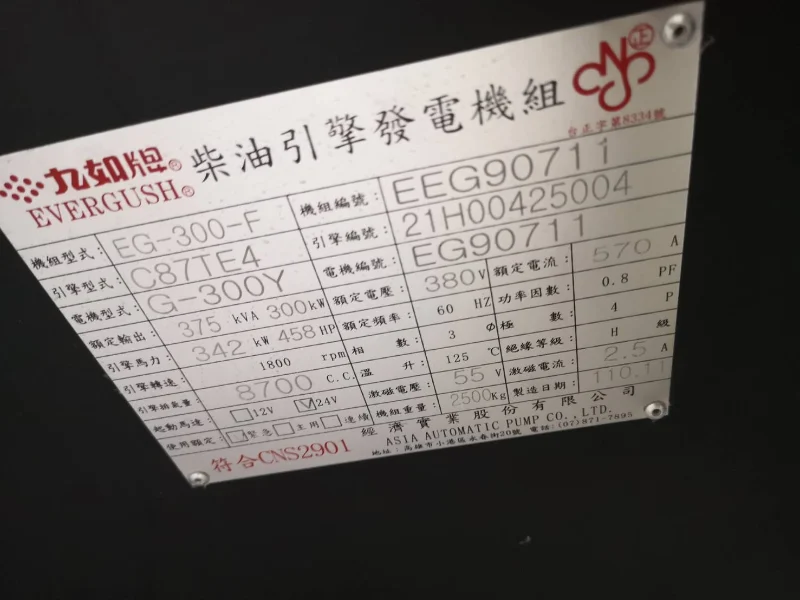 九如牌® 柴油引擎發電機組 CNS 正
EVERGUSH® 台正字第8334號
機組型式: EG-300-F 機組編號: EEG90711
引擎型式: C87TE4 引擎編號: 21H00425004
電機型式: G-300Y 電機編號: EG90711
額定輸出: 375 kVA 300 kW 額定電壓: 380 V 額定電流: 570 A
引擎馬力: 342 kW 458 HP 額定頻率: 60 HZ 功率因數: 0.8 PF
引擎轉速: 1800 rpm 相數: 3 Φ 極數: 4 P
引擎排氣量: 8700 C.C. 溫升: 125 ℃ 絕緣等級: H 級
起動馬達: □12V ☑24V 激磁電壓: 55 V 激磁電流: 2.5 A
使用額定: □緊急 □主用 □連續 機組重量: 2500 Kg 製造日期: 110.11
符合CNS2901 經濟實業股份有限公司
ASIA AUTOMATIC PUMP CO., LTD.
地址: 高雄市小港區永春街20號 電話: (07)871-7895